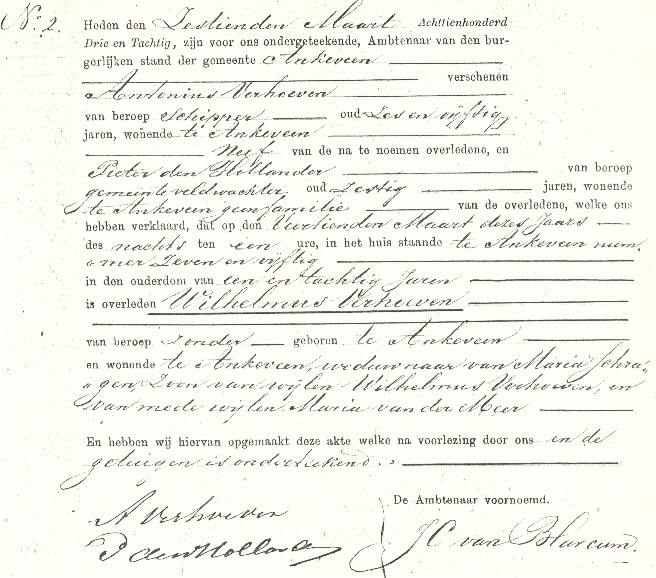 No. 2.
Heden den Zestienden Maart Achttienhonderd
Drie en Tachtig, zijn voor ons ondergeteekende, Ambtenaar van den bur-
gerlijken stand der gemeente Ankeveen
verschenen
Antonius Verhoeven
van beroep Schipper oud Zes en vijftig
jaren, wonende te Ankeveen
Neef van de na te noemen overledene, en
Pieter den Hollander van beroep
gemeente veldwachter oud Zestig jaren, wonende
te Ankeveen geen familie van de overledene, welke ons
hebben verklaard, dat op den Veertienden Maart dezes Jaars
des nachts ten een ure, in het huis staande te Ankeveen num-
mer Zeven en vijftig
in den ouderdom van een en tachtig Jaren
is overleden Wilhelmus Verhoeven
van beroep Zonder geboren te Ankeveen
en wonende te Ankeveen, weduwnaar van Maria Schra-
gen, Zoon van wijlen Wilhelmus Verhoeven, en
van mede wijlen Maria van der Meer
En hebben wij hiervan opgemaakt deze akte welke na voorlezing door ons en de
getuigen is onderteekend.
De Ambtenaar voornoemd.
A Verhoeven
P den Hollander
J C van Blarcum.